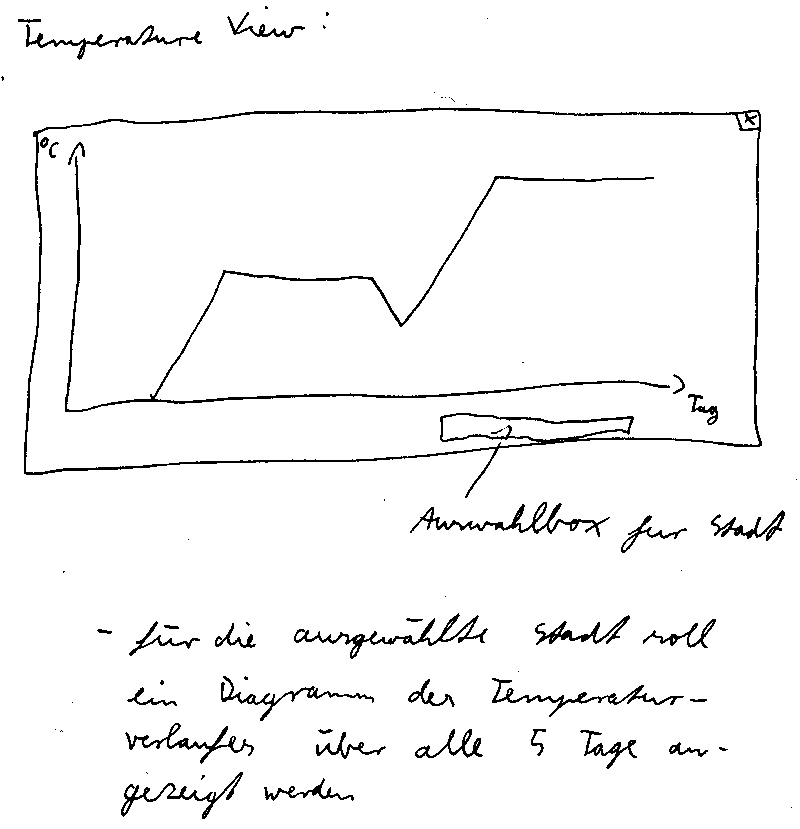 Temperature View :
°C
x
Tag
Auswahlbox für Stadt
- für die ausgewählte Stadt soll
ein Diagramm des Temperatur-
verlaufes über alle 5 Tage an-
gezeigt werden